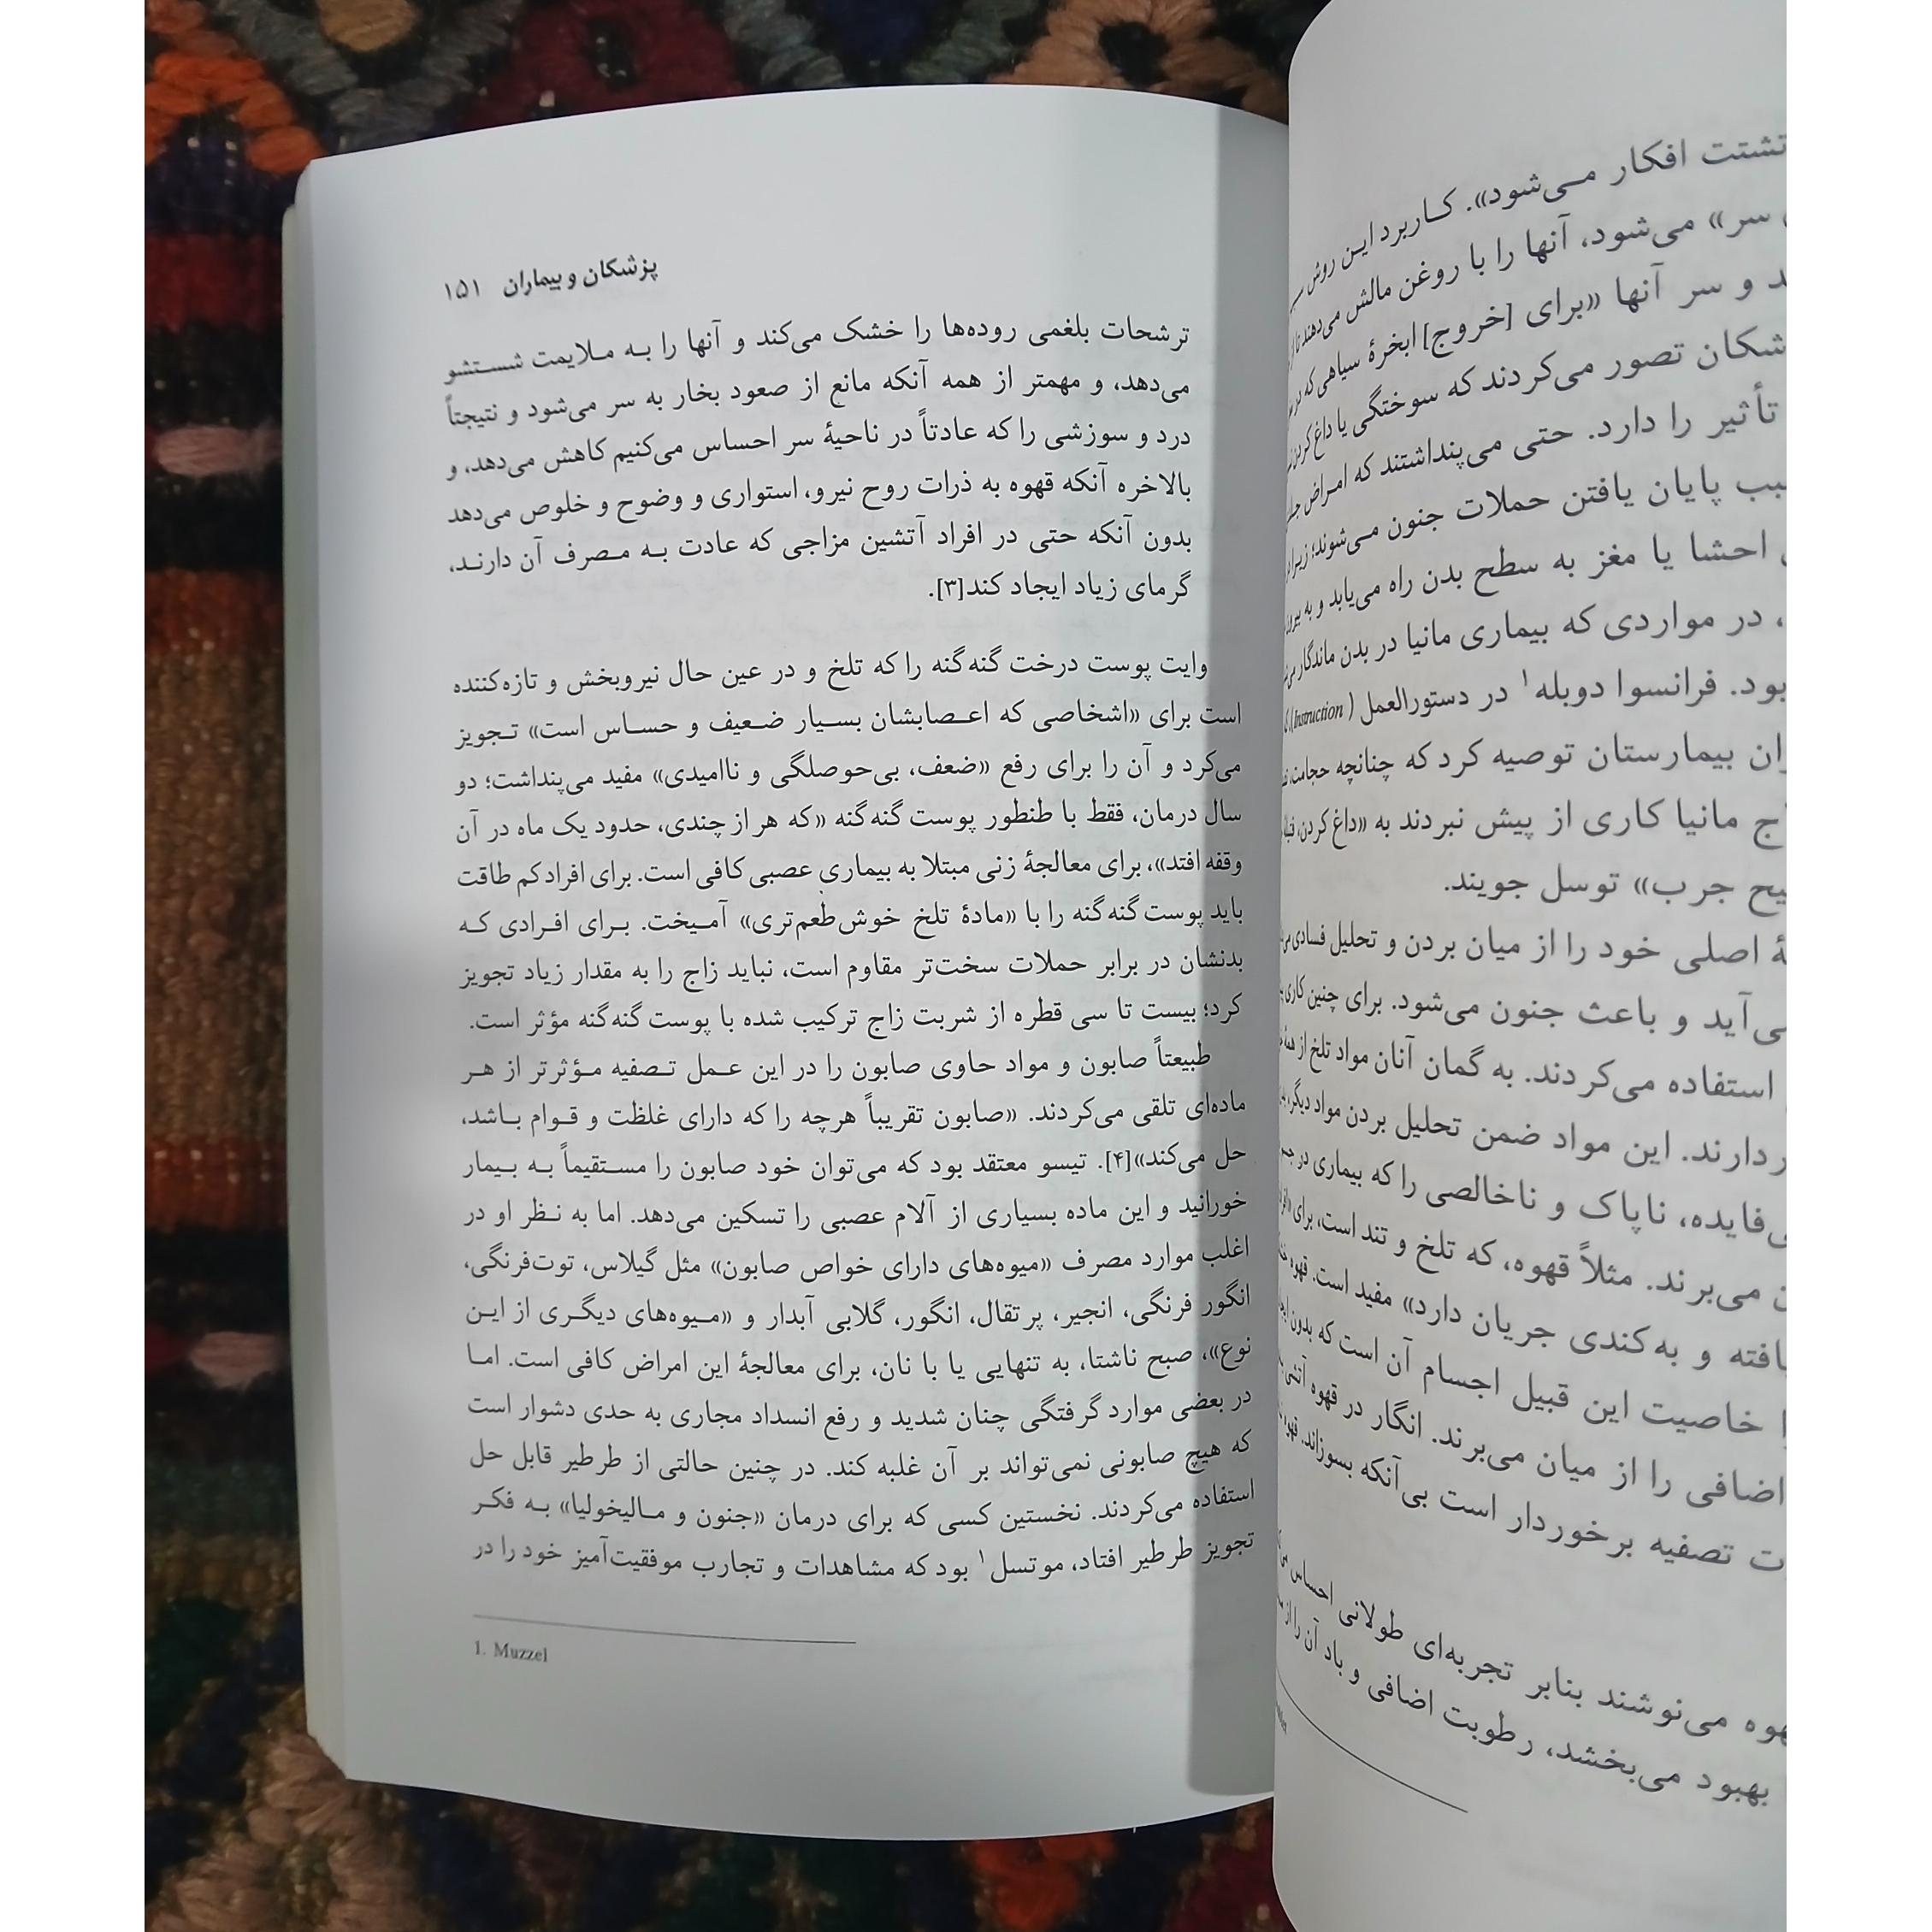 تشتت افکار می‌شود». کاربرد این روش
سر» می‌شود، آنها را با روغن مالش می‌دهند تا از
و سر آنها «برای [خروج] ابخرهٔ سیاهی که در
تصور می‌کردند که سوختگی یا داغ کردن
تأثیر را دارد. حتی می‌پنداشتند که امراض
پایان یافتن حملات جنون می‌شوند؛ زیرا
احشا یا مغز به سطح بدن راه می‌یابد و به
، در مواردی که بیماری مانیا در بدن ماندگار
بود. فرانسوا دوبله۱ در دستورالعمل (Instruction)
بیمارستان توصیه کرد که چنانچه حجامت،
مانیا کاری از پیش نبردند به «داغ کردن،
جرب» توسل جویند.
اصلی خود را از میان بردن و تحلیل فسادی
می‌آید و باعث جنون می‌شود. برای چنین کاری
استفاده می‌کردند. به گمان آنان مواد تلخ از همهٔ
دارند. این مواد ضمن تحلیل بردن مواد دیگر،
بی‌فایده، ناپاک و ناخالصی را که بیماری در
می‌برند. مثلاً قهوه، که تلخ و تند است، برای
یافته و به‌کندی جریان دارد» مفید است. قهوه
خاصیت این قبیل اجسام آن است که بدون
اضافی را از میان می‌برند. انگار در قهوه
تصفیه برخوردار است بی‌آنکه بسوزاند. قهوه
قهوه می‌نوشند بنابر تجربه‌ای طولانی احساس
بهبود می‌بخشد، رطوبت اضافی و باد آن را از
پزشکان و بیماران ۱۵۱
ترشحات بلغمی روده‌ها را خشک می‌کند و آنها را به ملایمت شستشو
می‌دهد، و مهمتر از همه آنکه مانع از صعود بخار به سر می‌شود و نتیجتاً
درد و سوزشی را که عادتاً در ناحیهٔ سر احساس می‌کنیم کاهش می‌دهد، و
بالاخره آنکه قهوه به ذرات روح نیرو، استواری و وضوح و خلوص می‌دهد
بدون آنکه حتی در افراد آتشین مزاجی که عادت به مصرف آن دارند،
گرمای زیاد ایجاد کند[۳].
وایت پوست درخت گنه‌گنه را که تلخ و در عین حال نیروبخش و تازه‌کننده
است برای «اشخاصی که اعصابشان بسیار ضعیف و حساس است» تجویز
می‌کرد و آن را برای رفع «ضعف، بی‌حوصلگی و ناامیدی» مفید می‌پنداشت؛ دو
سال درمان، فقط با طنطور پوست گنه‌گنه «که هر از چندی، حدود یک ماه در آن
وقفه افتد»، برای معالجهٔ زنی مبتلا به بیماری عصبی کافی است. برای افراد کم طاقت
باید پوست گنه‌گنه را با «مادهٔ تلخ خوش‌طعم‌تری» آمیخت. برای افرادی که
بدنشان در برابر حملات سخت‌تر مقاوم است، نباید زاج را به مقدار زیاد تجویز
کرد؛ بیست تا سی قطره از شربت زاج ترکیب شده با پوست گنه‌گنه مؤثر است.
طبیعتاً صابون و مواد حاوی صابون را در این عمل تصفیه مؤثرتر از هر
ماده‌ای تلقی می‌کردند. «صابون تقریباً هرچه را که دارای غلظت و قوام باشد،
حل می‌کند»[۴]. تیسو معتقد بود که می‌توان خود صابون را مستقیماً به بیمار
خورانید و این ماده بسیاری از آلام عصبی را تسکین می‌دهد. اما به نظر او در
اغلب موارد مصرف «میوه‌های دارای خواص صابون» مثل گیلاس، توت‌فرنگی،
انگور فرنگی، انجیر، پرتقال، انگور، گلابی آبدار و «میوه‌های دیگری از این
نوع»، صبح ناشتا، به تنهایی یا با نان، برای معالجهٔ این امراض کافی است. اما
در بعضی موارد گرفتگی چنان شدید و رفع انسداد مجاری به حدی دشوار است
که هیچ صابونی نمی‌تواند بر آن غلبه کند. در چنین حالتی از طرطیر قابل حل
استفاده می‌کردند. نخستین کسی که برای درمان «جنون و مالیخولیا» به فکر
تجویز طرطیر افتاد، موتسل۱ بود که مشاهدات و تجارب موفقیت‌آمیز خود را در
1. Muzzel